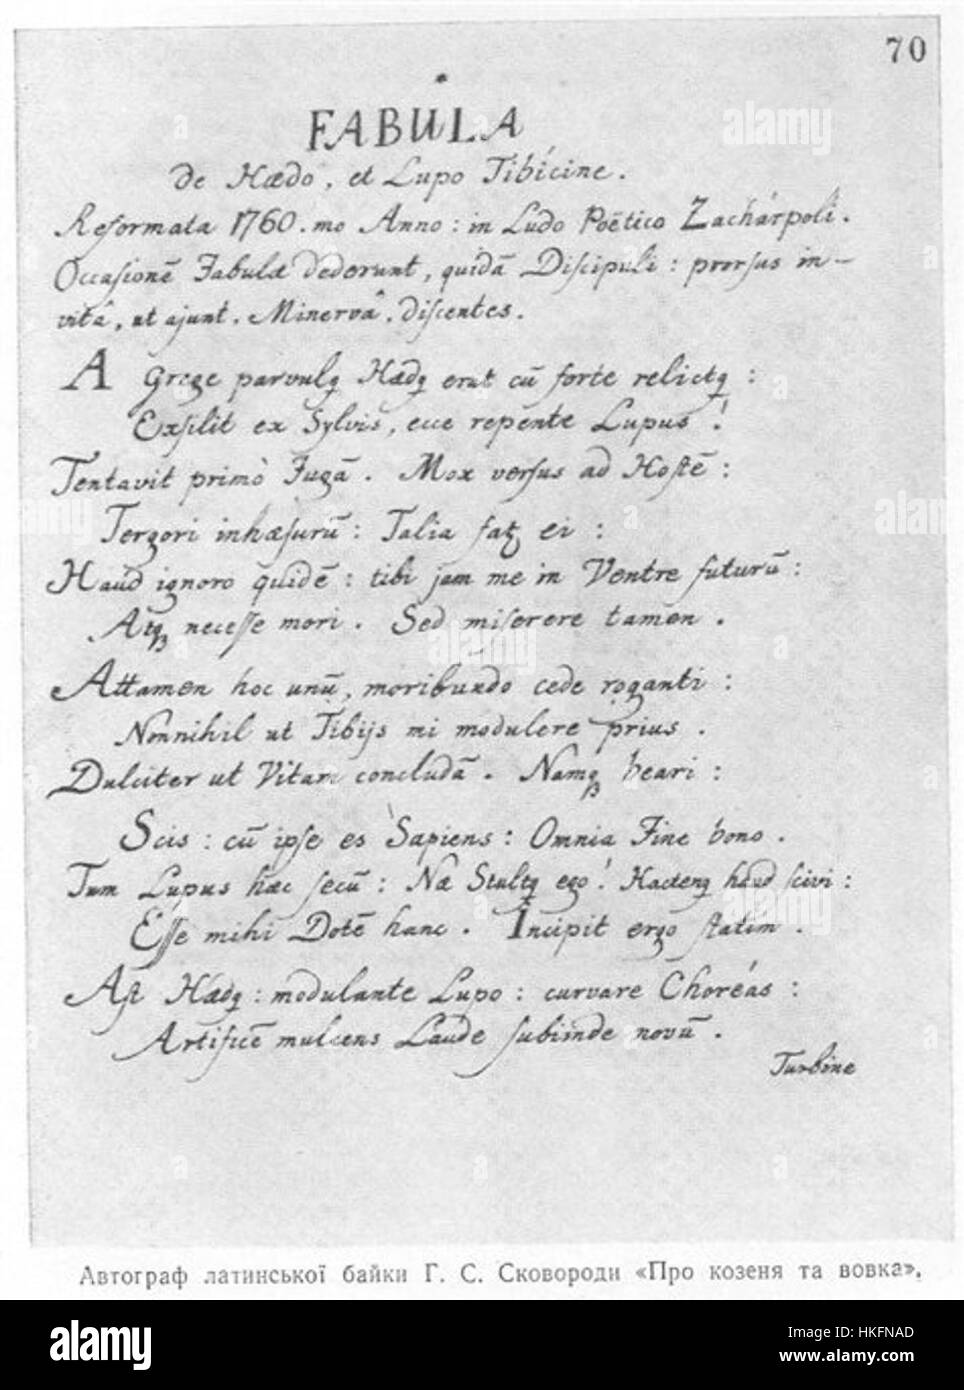 70
FABULA
de Hædo, et Lupo Tibícine.
Reformata 1760.mo Anno: in Ludo Poëtico Zachárpoli.
Occasionē Fabulæ dederunt, quidā Discipuli: prorsus in-
vitâ, ut ajunt, Minervâ, discentes.
A Grege parvulꝫ Hædꝫ erat cū forte relictꝫ:
Exsilit ex Sylvis, ecce repente Lupus!
Tentavit primò Fugā. Mox versus ad Hostē:
Tergori inhæsurū: Talia fatꝫ ei:
Haud ignoro quidē: tibi jam me in Ventre futurū:
Atqꝫ necesse mori. Sed miserere tamen.
Attamen hoc unū, moribundo cede roganti:
Nonnihil ut Tibijs mi modulere prius.
Dulciter ut Vitam concludā. Namqꝫ beari:
Scis: cū ipse es Sapiens: Omnia Fine bono.
Tum Lupus hæc secū: Næ Stultꝫ ego! Hactenꝫ haud scivi:
Esse mihi Dotē hanc. Incipit ergo statim.
Ast Hædꝫ: modulante Lupo: curvare Choréas:
Artificē mulcens Laude subinde novū.
Turbine
Автограф латинської байки Г. С. Сковороди «Про козеня та вовка».
alamy
Image ID: HKFNAD
www.alamy.com